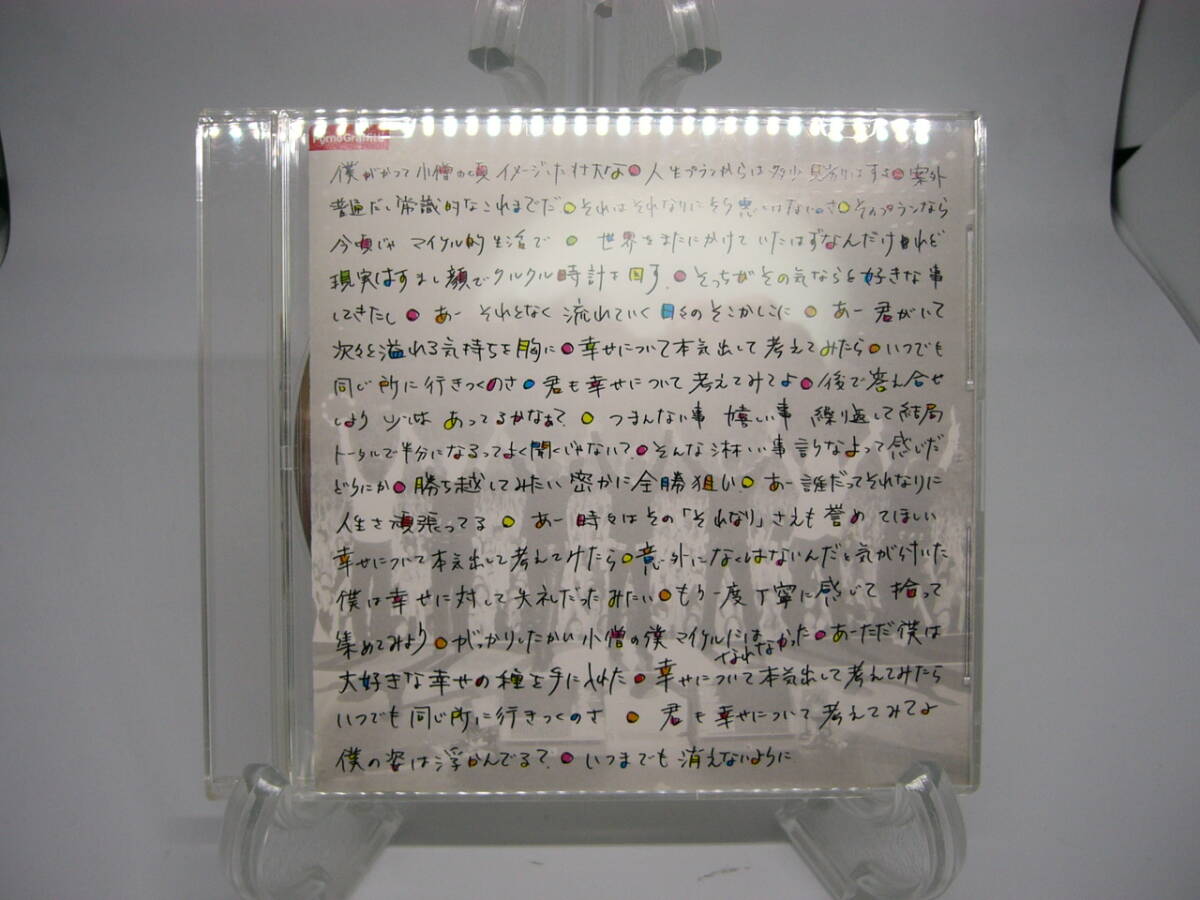 PornoGraffitti
僕がかつて小僧の頃 イメージした壮大な 人生プランからは多少見劣りはする 案外
普通だし常識的なこれまでだ それはそれなりにそう悪くはないのさ そのプランなら
今頃じゃ マイケル的生活で 世界をまたにかけていたはずなんだけれど
現実はすまし顔でクルクル時計を回す そっちがその気ならと好きな事
してきたし あー それとなく 流れていく 日々のそこかしこに あー 君がいて
次々と溢れる気持ちを胸に 幸せについて本気出して考えてみたら いつでも
同じ所に行きつくのさ 君も幸せについて考えてみてよ 後で答え合せ
しよう 少しは あってるかなぁ? つまんない事 嬉しい事 繰り返して結局
トータルで半分になるってよく聞くじゃない? そんな淋しい事言うなよって感じだ
どうにか 勝ち越してみたい 密かに全勝狙い あー 誰だってそれなりに
人生を頑張ってる あー 時々はその「それなり」さえも誉めてほしい
幸せについて本気出して考えてみたら 意外になくしはないんだと気が付いた
僕は幸せに対して失礼だったみたい もう一度丁寧に感じて拾って
集めてみよう がっかりしたかい 小僧の僕 マイケルにはなれなかった あーただ僕は
大好きな幸せの種を手に入れた 幸せについて本気出して考えてみたら
いつでも同じ所に行きつくのさ 君も幸せについて考えてみてよ
僕の姿は浮かんでる? いつまでも消えないように